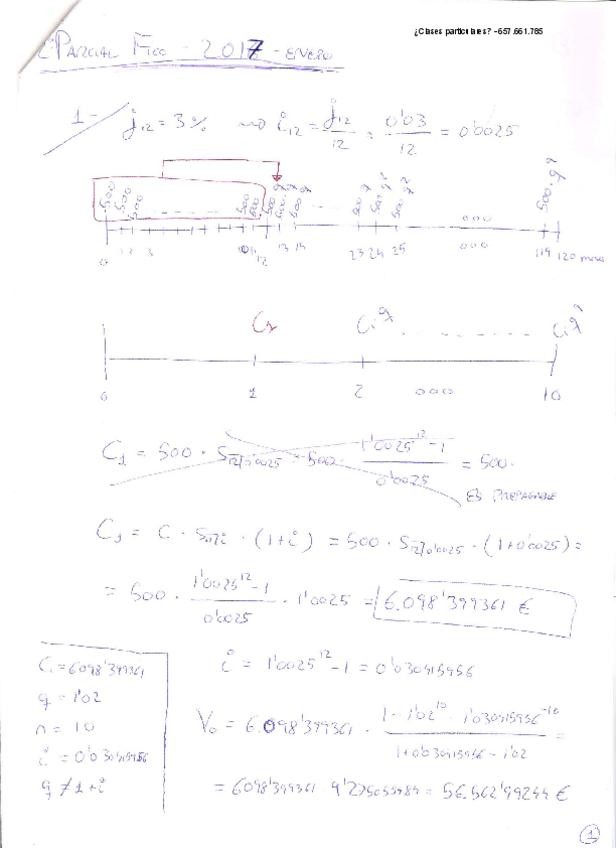 ¿Clases particulares? -657.661.785
PARCIAL FICO - 2017 - ENERO
1- j12 = 3% i12 = j12/12 = 0'03/12 = 0'0025
500 500 500 500 500 500·q 500·q 500·q 500·q 500·q² 500·q² 500·q⁹
0 1 2 3 10 11 12 13 14 23 24 25 ooo 119 120 meses
C1 C1q C1q⁹
0 1 2 ooo 10
C1 = 500 · S12|0'0025 = 500 · (1'0025¹² - 1)/0'0025 = 500·
ES PREPAGABLE
C1 = C · Sn|i · (1+i) = 500 · S12|0'0025 · (1+0'0025) =
= 500 · (1'0025¹² - 1)/0'0025 · 1'0025 = 6.098'399361 €
i = 1'0025¹² - 1 = 0'030415956
C1 = 6098'399361
q = 1'02
n = 10
i = 0'030415956
q ≠ 1+i
V0 = 6.098'399361 · (1 - 1'02¹⁰ · 1'030415956⁻¹⁰)/(1+0'030415956 - 1'02) =
= 6098'399361 · 9'275055989 = 56.562'99244 €
1